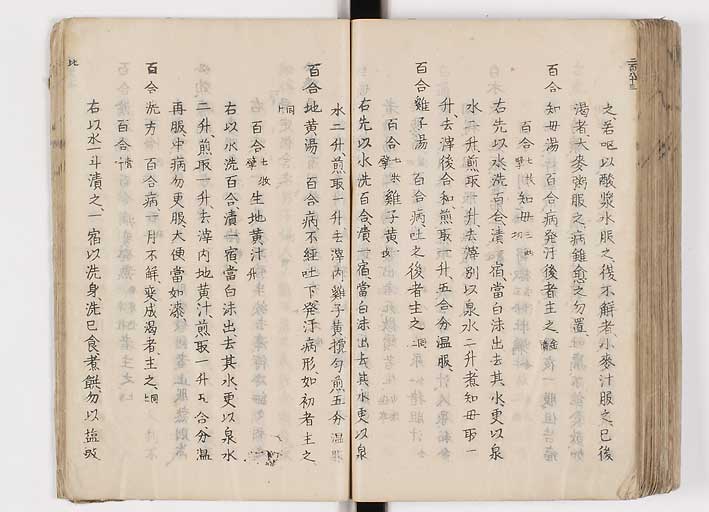 之、若呕以酸漿水服之、後不解者、小麥汁服之、已後
渇者、大麥粥服之、病雖愈之勿置
百合知毋湯　百合病発汗後者主之
百合七枚擘　知毋三両切
右先以水洗百合漬一宿當白沫出去其水、更以泉
水二升、煎取一升、去滓別以泉水二升、煮知毋取一
升、去滓後合和、煎取一升、五合分温服、
百合雞子湯　百合病、吐之後者主之同
百合七枚擘　雞子黄一枚
右先以水洗百合漬一宿當白沫出去其水更以泉
水二升、煎取一升去滓内雞子黄攪匀煎五分温服
百合地黄湯　百合病、不經吐下発汗病形、如初者主之
同
百合七枚擘　生地黄汁一升
右以水洗百合漬一宿當白沫出去其水、更以泉水
二升、煎取一升、去滓内地黄汁煎取一升五合分温
再服、中病勿更服、大便當如漆、
百合洗方　百合病一月不解、変成渇者、主之、同上
百合一升
右以水一斗漬之、一宿以洗身、洗已食煮餅、勿以塩豉